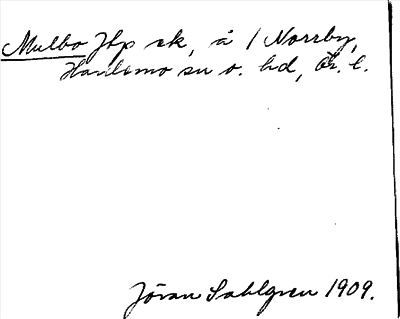 Mulbo Jtp sk, å 1 Norrby,
Hardemo sn o. hd, Ör. l.
Jöran Sahlgren 1909.